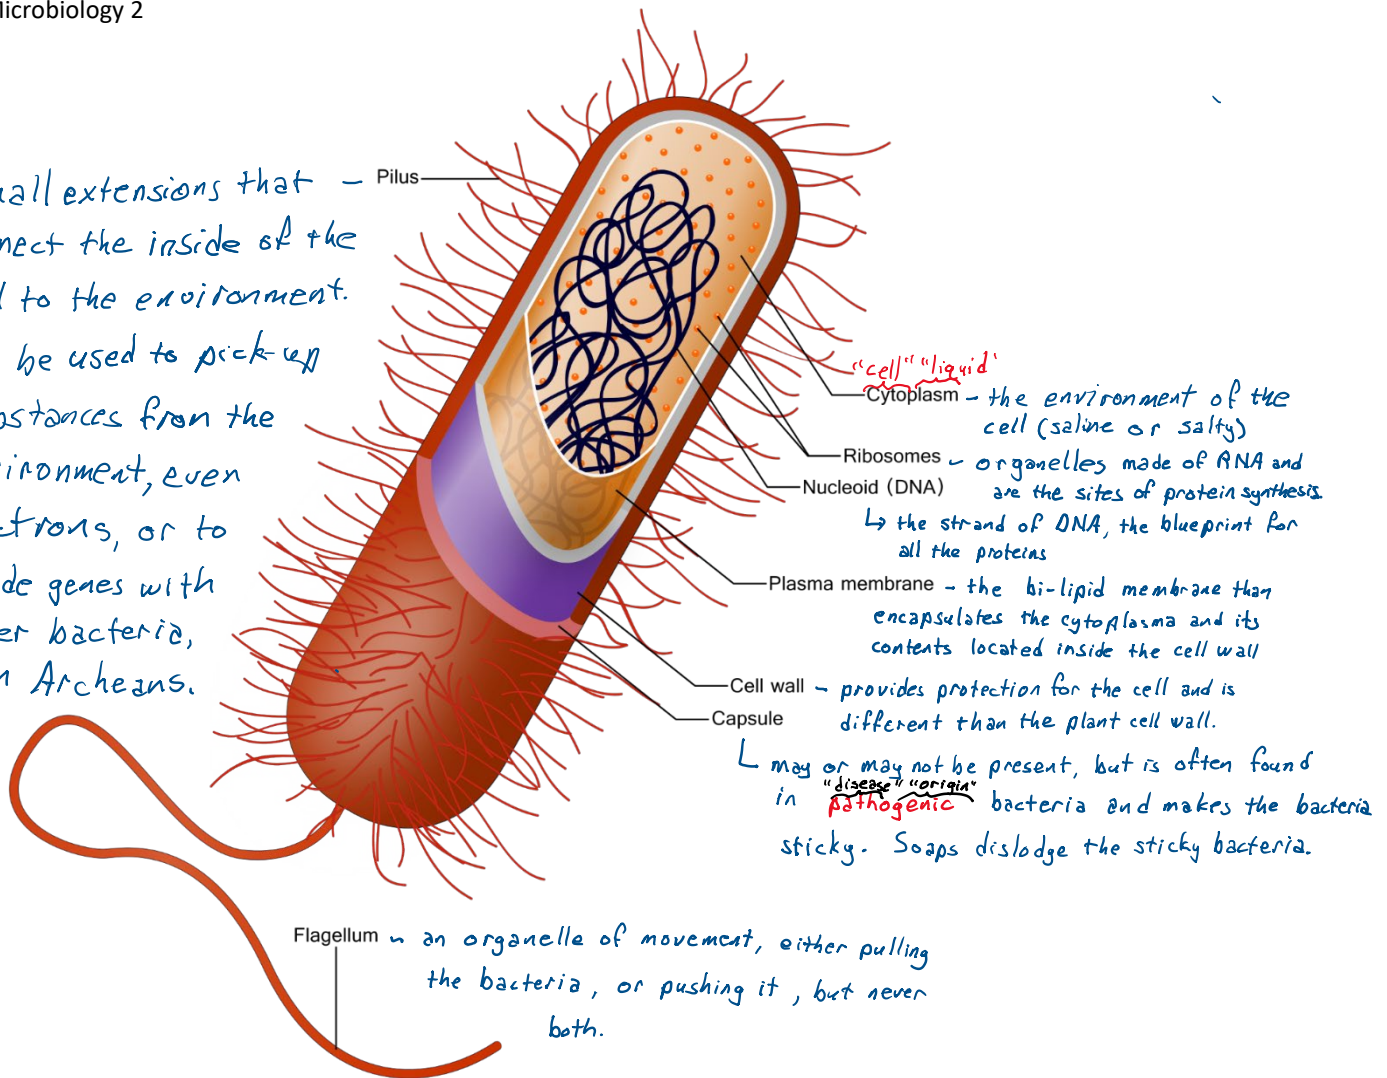 Microbiology 2
nall extensions that – Pilus
nect the inside of the
l to the environment.
be used to pick-up
bstances from the
ironment, even
ctrons, or to
de genes with
er bacteria,
n Archeans.
"cell" "liquid"
Cytoplasm – the environment of the
cell (saline or salty)
Ribosomes – organelles made of RNA and
are the sites of protein synthesis.
Nucleoid (DNA)
↳ the strand of DNA, the blueprint for
all the proteins
Plasma membrane – the bi-lipid membrane than
encapsulates the cytoplasma and its
contents located inside the cell wall
Cell wall – provides protection for the cell and is
different than the plant cell wall.
Capsule
may or may not be present, but is often found
"disease" "origin"
in pathogenic bacteria and makes the bacteria
sticky. Soaps dislodge the sticky bacteria.
Flagellum – an organelle of movement, either pulling
the bacteria, or pushing it, but never
both.